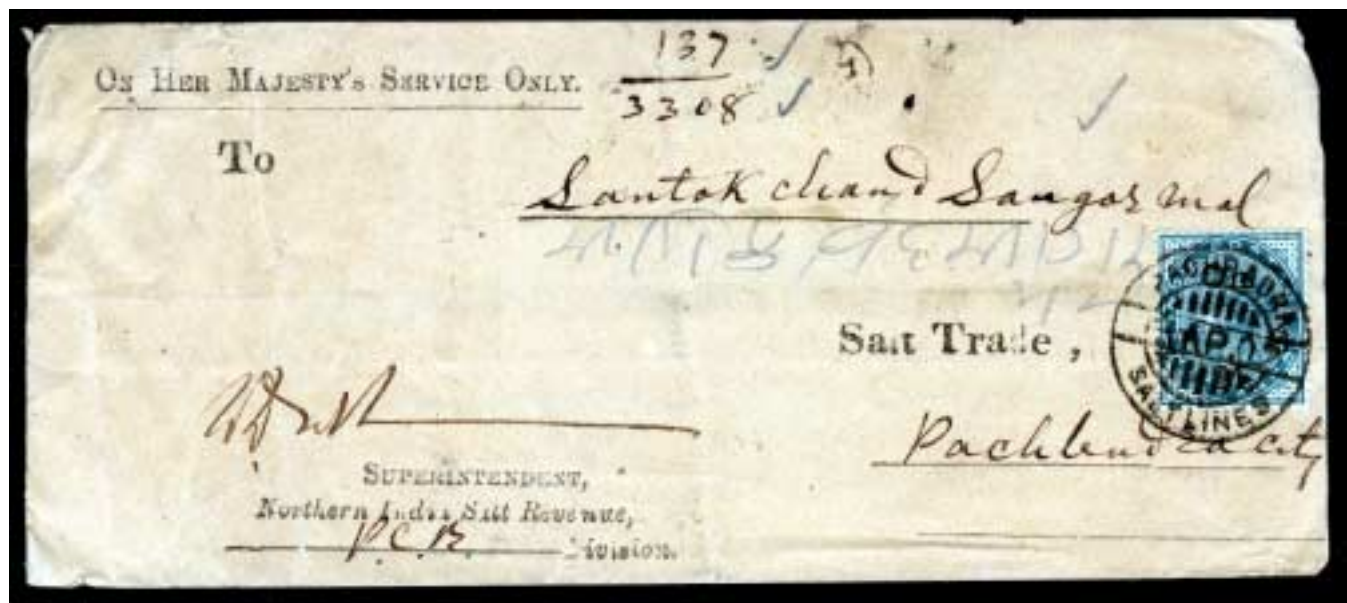 ON HER MAJESTY'S SERVICE ONLY.
137
3308
To
Santok chand Sangor mal
Salt Trade,
SALT LINES
Pachbudra city
SUPERINTENDENT,
Northern India Salt Revenue,
P.C.B. Division.